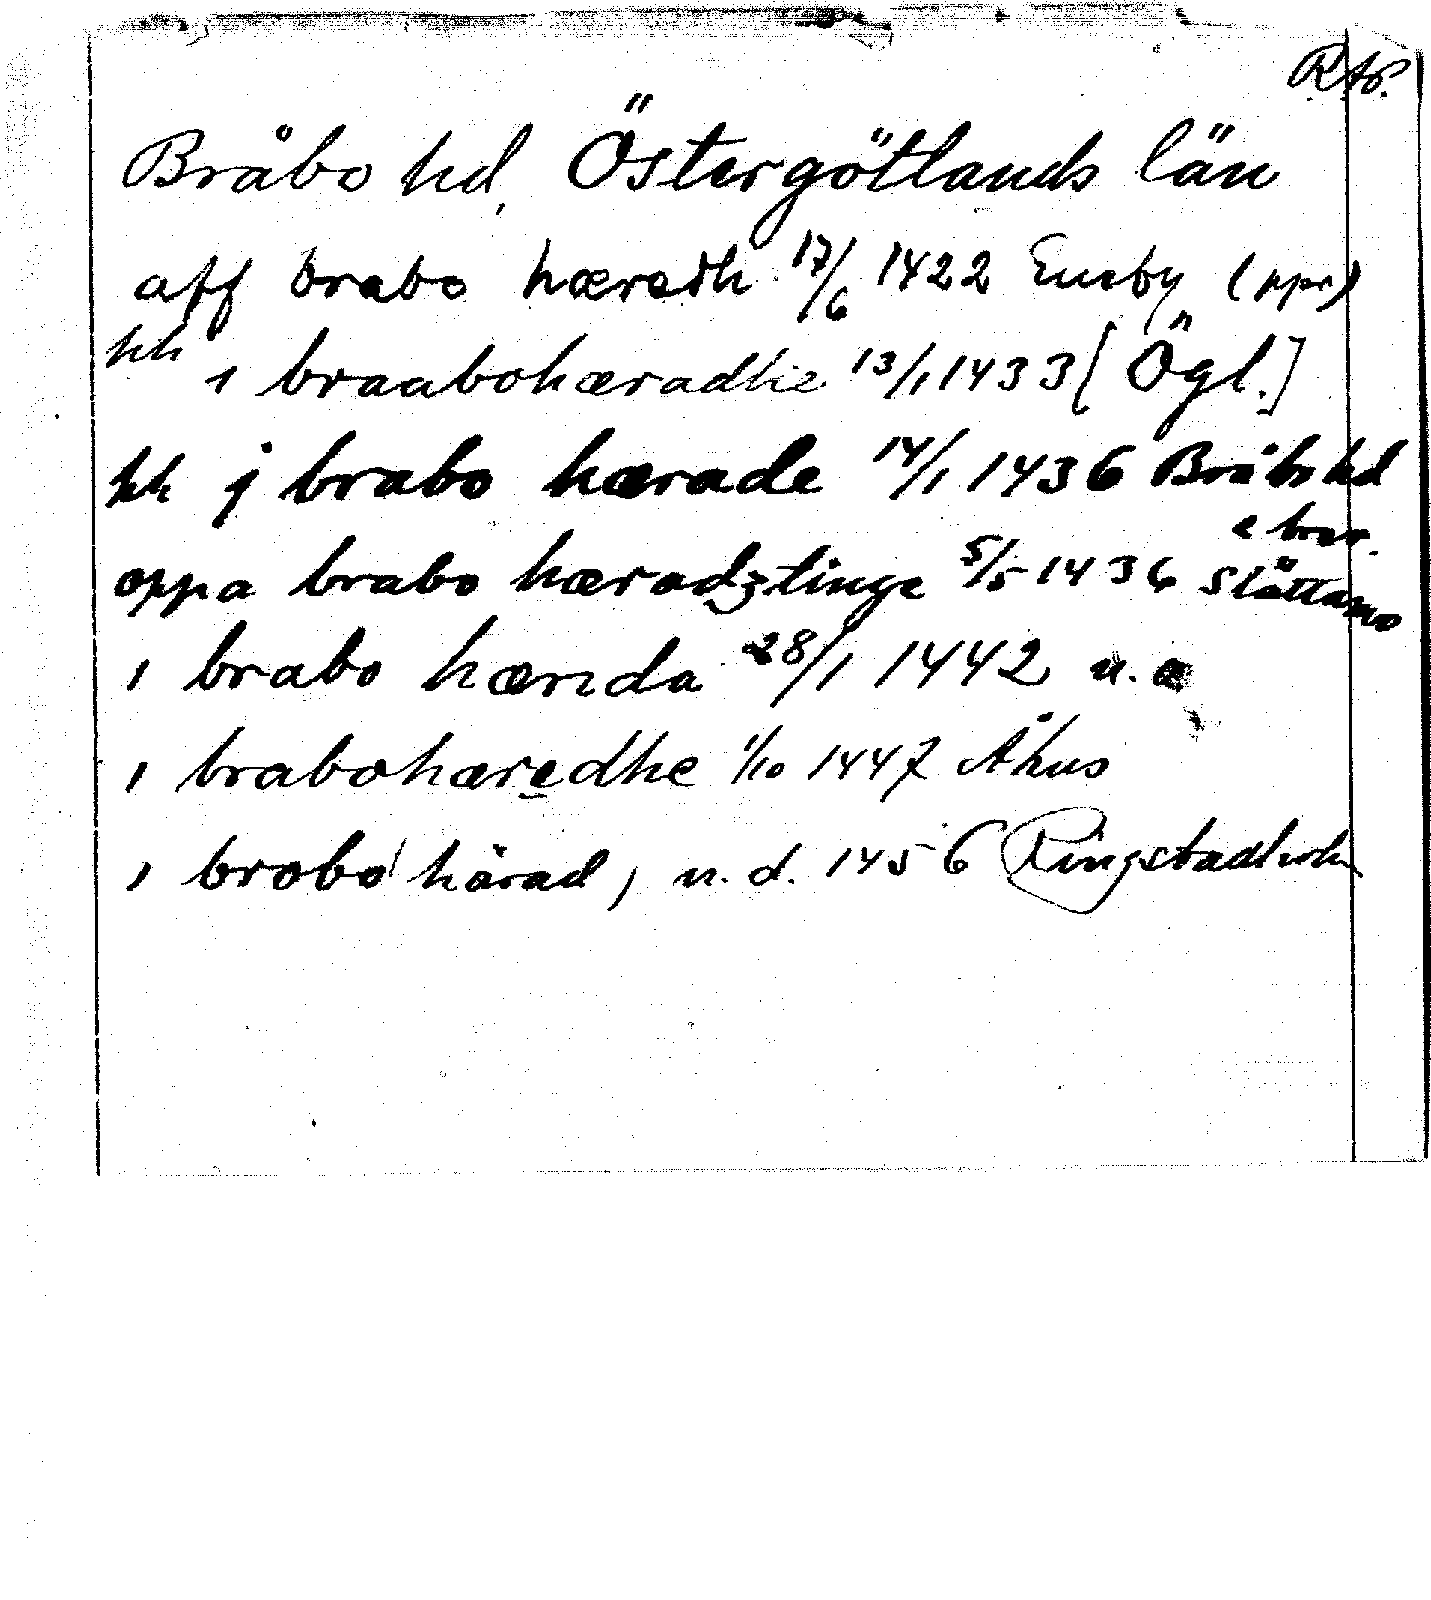 R.Ap.
Bråbo hd, Östergötlands län
aff brabo hæredh 17/6 1422 Eneby (ppr)
hh i braabohæradhe 13/1 1433 [Ögl.]
hh j brabo hærade 14/1 1436 Bråbo hd
oppa brabo hæradztinge 5/5 1436 Slåttamo
i brabo hærida 28/1 1442 u.a
i brabohæredhe 1/10 1447 Åhus
i brobo härad, u.d. 1456 Ringstadholm